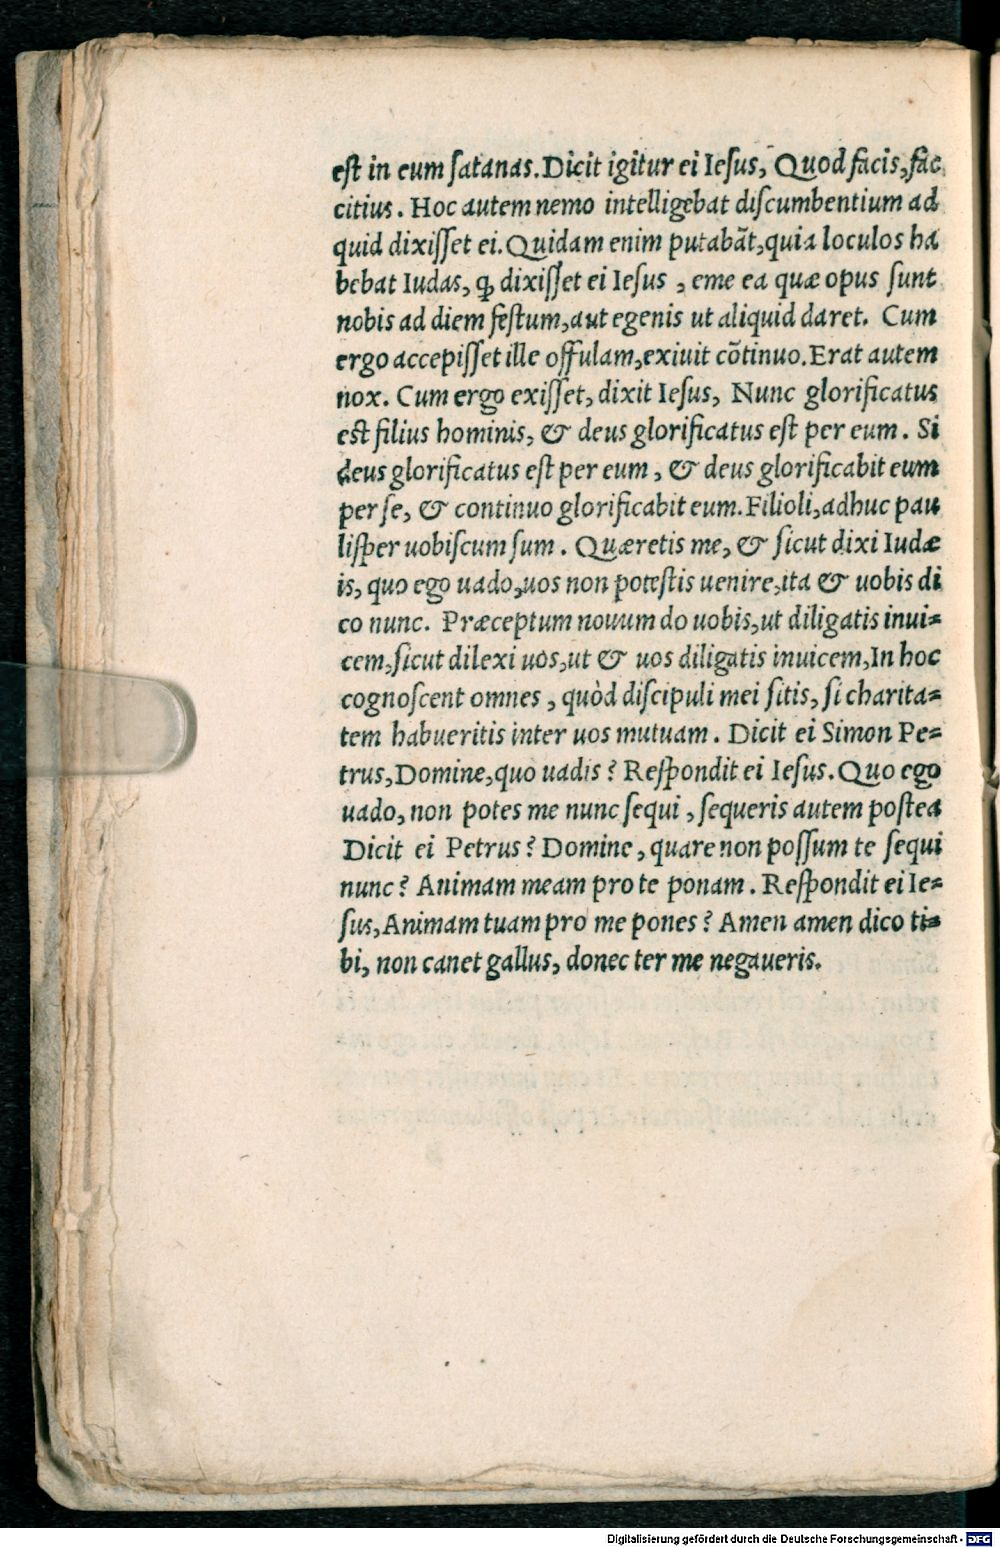 est in eum satanas. Dicit igitur ei Iesus, Quod facis, fac
citius. Hoc autem nemo intelligebat discumbentium ad
quid dixisset ei. Quidam enim putabãt, quia loculos ha
bebat Iudas, ꝙ dixisset ei Iesus, eme ea quæ opus sunt
nobis ad diem festum, aut egenis ut aliquid daret. Cum
ergo accepisset ille offulam, exiuit cõtinuo. Erat autem
nox. Cum ergo exisset, dixit Iesus, Nunc glorificatus
est filius hominis, & deus glorificatus est per eum. Si
deus glorificatus est per eum, & deus glorificabit eum
per se, & continuo glorificabit eum. Filioli, adhuc pau
lisper uobiscum sum. Quæretis me, & sicut dixi Iudæ
is, quo ego uado, uos non potestis uenire, ita & uobis di
co nunc. Præceptum nouum do uobis, ut diligatis inui=
cem, sicut dilexi uos, ut & uos diligatis inuicem, In hoc
cognoscent omnes, quòd discipuli mei sitis, si charita=
tem habueritis inter uos mutuam. Dicit ei Simon Pe=
trus, Domine, quo uadis? Respondit ei Iesus. Quo ego
uado, non potes me nunc sequi, sequeris autem postea
Dicit ei Petrus? Domine, quare non possum te sequi
nunc? Animam meam pro te ponam. Respondit ei Ie=
sus, Animam tuam pro me pones? Amen amen dico ti=
bi, non canet gallus, donec ter me negaueris.
Digitalisierung gefördert durch die Deutsche Forschungsgemeinschaft - DFG